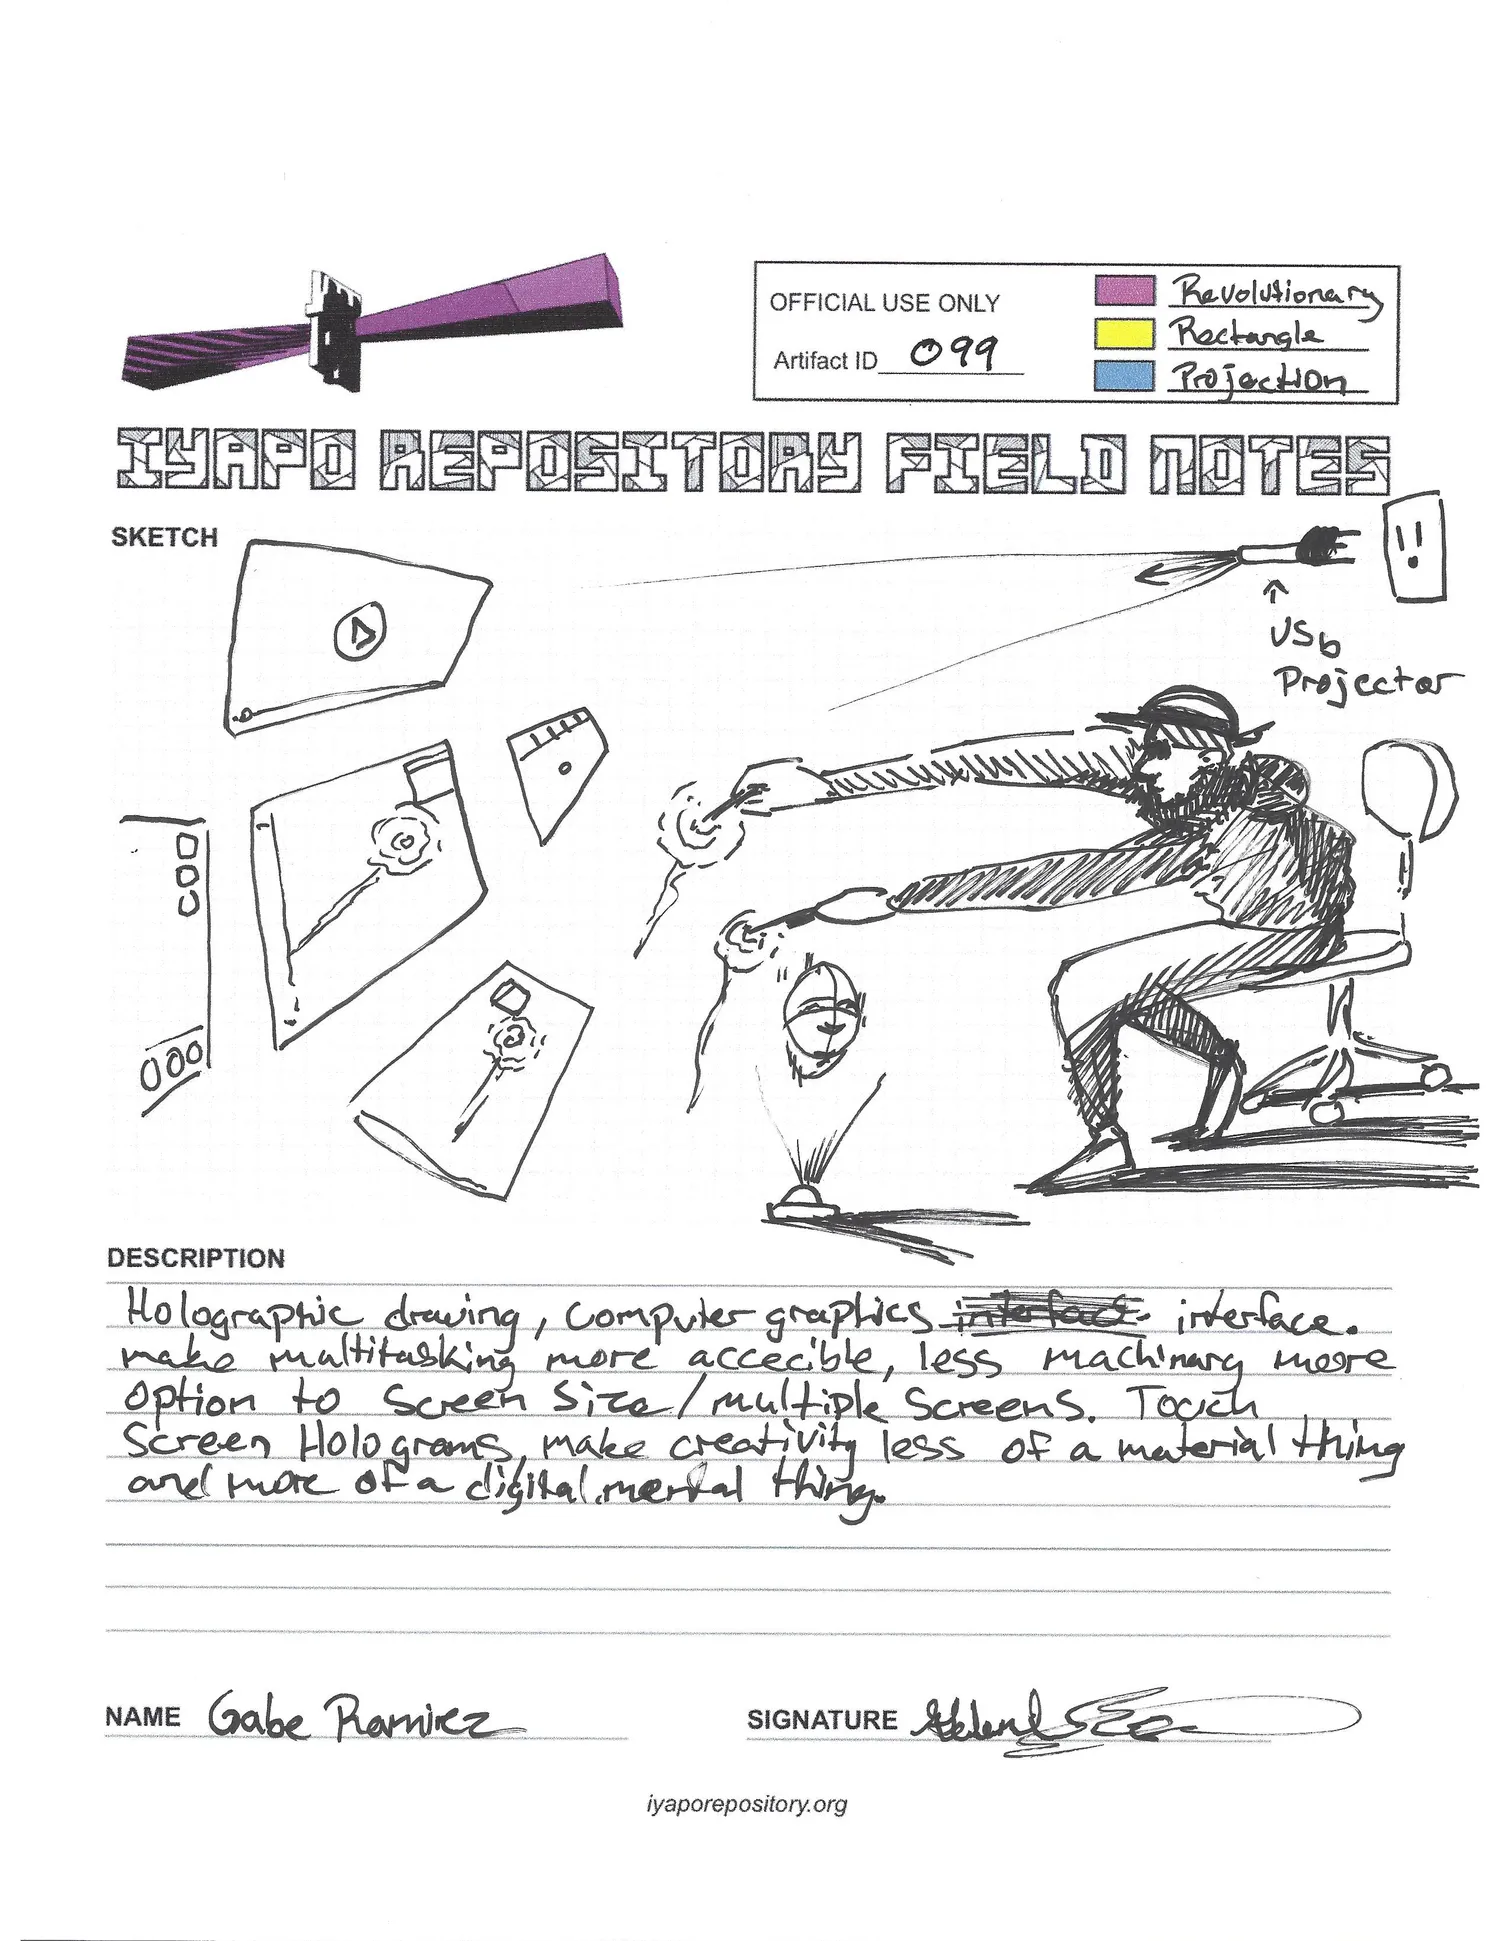 OFFICIAL USE ONLY
Artifact ID 099
Revolutionary
Rectangle
Projection
IYAPO REPOSITORY FIELD NOTES
SKETCH
USb
Projector
DESCRIPTION
Holographic drawing, computer graphics interface.
make multitasking more accecible, less machinary more
option to screen size/multiple screens. Touch
screen Holograms, make creativity less of a material thing
and more of a digital, mental thing.
NAME Gabe Ramirez
SIGNATURE
iyaporepository.org